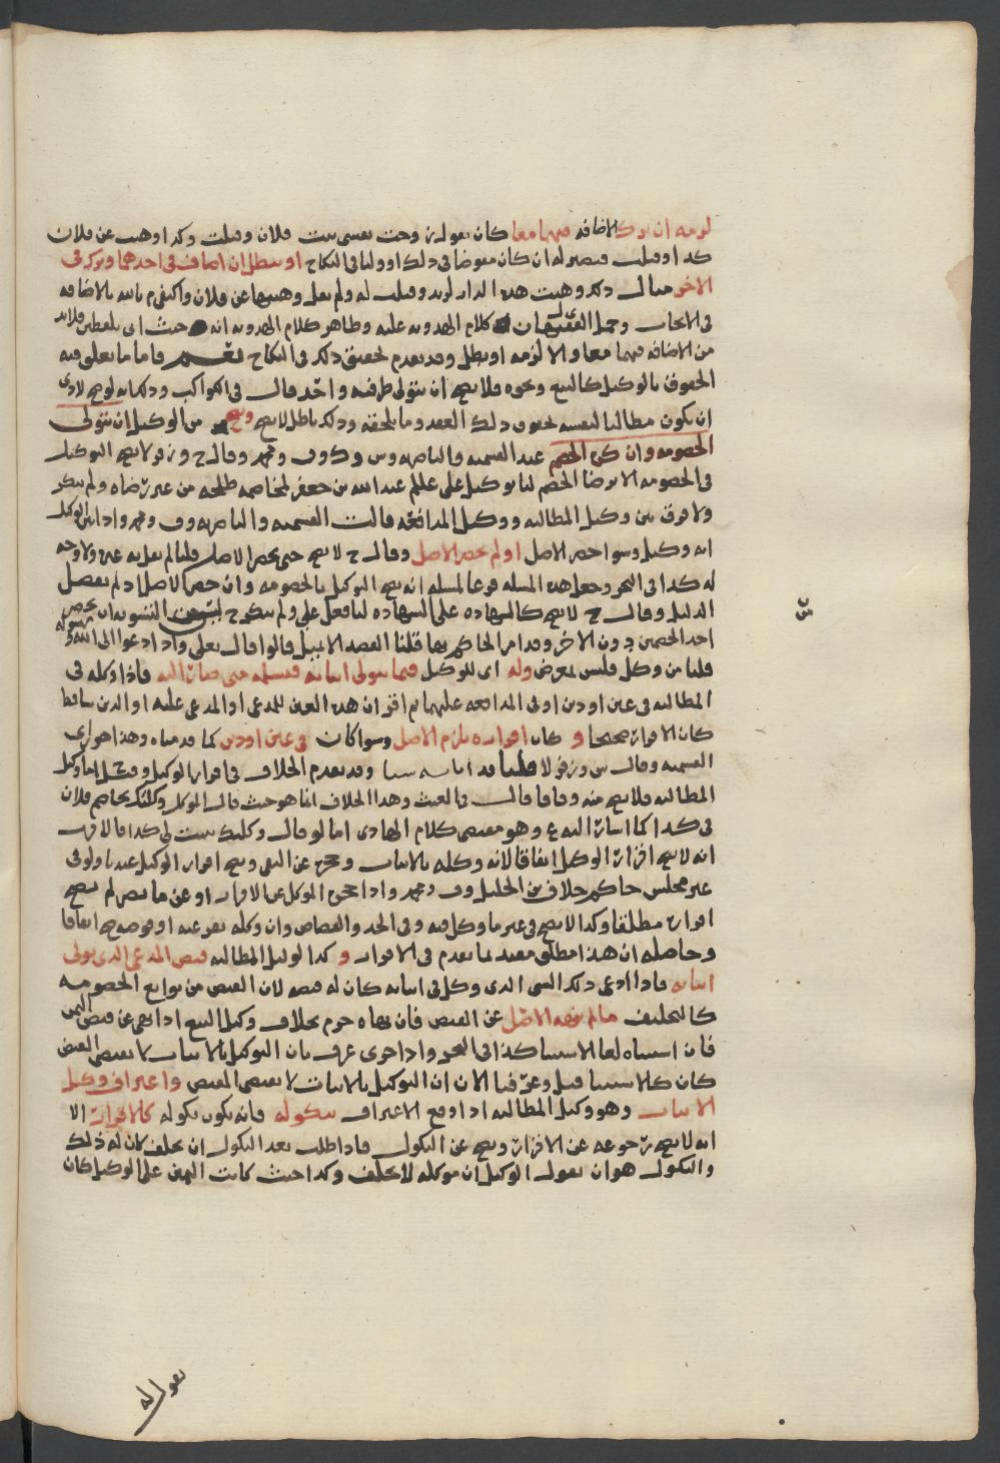 لزمه ان ترك الاضافه فيهما معا كان يقول زوجت نفسي بنت فلان وقبلت وكذا وهب عن فلان
كذا وقبلت فيصير له ان كان مفوضا في ذلك او وليا في النكاح او يبطل ان اضاف في احدهما وترك في
الاخر مثال ذلك وهبت هذه الدار لزيد وقبلت له ولم يقل وهبتها عن فلان واكتفى م بالله بالاضافه
في الايجاب وحمل الفقيهان كلام الهدويه عليه وظاهر كلام الهدويه انه حيث اتى بلفظين فلابد
من الاضافه فيهما معا والا لزمه او بطل وقد تقدم تحقيق ذلك في النكاح نعم فاما ما تعلق فيه
الحقوق بالوكيل كالبيع ونحوه فلا يصح ان يتولى طرفيه واحد قال في الكواكب وذلك انه لو صح لادى
ان يكون مطالبا لنفسه بحقوق ذلك العقد وما يلحقه وذلك باطل لا يصح ويصح من الوكيل ان يتولى
الخصومه وان كره الخصم عند القسميه والناصريه وش وك وف ومحمد وقال ح وزفر لا يصح التوكيل
في الخصومه الا برضا الخصم لنا توكيل علي عليلم عبدالله بن جعفر لمخاصمه طلحه من غير رضاه ولم ينكر
ولا فرق بين وكيل المطالبه ووكيل المدافعه قالت القسميه والناصريه وف ومحمد واذا بين الوكيل
انه وكيل وسوا حضر الاصل او لم يحضر الاصل وقال ح لا يصح حتى يحضر الاصل قلنا لم يقل به غيره ولا وجه
له كذا في البحر وجعل هذه المسله فرعا لمسله انه يصح التوكيل بالخصومه وان حضر الاصل اذ لم يفصل
الدليل وقال ح لا يصح كالشهاده على الشهاده لنا فعل علي ولم ينكر ح التسويه ان يحضر
احد الخصمين دون الاخر وقد امر الحاكم بها قلنا القصد الا يميل قالوا قال تعالى واذا دعوا الى الله ورسوله
قلنا من وكل فليس بمعرض وله اى للوكيل فيما تولى اثباته فيسلمه متى صار اليه فاذا وكله في
المطالبه في عين او دين او في المدافعه عليهما ثم اقر ان هذه العين للمدعي او المدعى عليه او الدين ساقط
كان الاقرار صحيحا و كان اقراره يلزم الاصل وسوا كان في عين او دين كما قدمناه وهذا هو راي
القسميه وقال ش وزفر لا قلنا قد وقد تقدم الخلاف في اقرار الوكيل اما وكيل
المطالبه فلا يصح منه وفاقا قال في الغيث وهذا الخلاف انما هو حيث قال الموكل وكلتك تخاصم فلان
في كذا كما اشار اليه ع وهو مقتضى كلام الهادي اما لو قال وكلتك تثبت لي كذا فالاقرب
انه لا يصح اقرار الوكيل اتفاقا لانه وكله بالاثبات وحجر عن النفي ويصح اقرار الوكيل عندنا ولو في
غير مجلس حاكم خلاف بن الخليل وف ومحمد واذا حجر الموكل عن الاقرار او عن ما يضر لم يصح
اقراره مطلقا وكذا لا يصح في غير ما وكل فيه وفي الحد والقصاص وان وكله يقر عنه او فوضه صح اتفاقا
وحاصله ان هذا مطلق مقيد بما تقدم في الاقرار و كذا لوكيل المطالبه قبض المدعى الذي تولى
اثباته فاذا ادعى ذلك الشي الذي وكل في اثباته كان له قبضه لان القبض من توابع الخصومه
كالتحليف ما لم ينهه الاصل عن القبض فان نهاه حرم بخلاف وكيل البيع اذا نهي عن قبض الثمن
فان استثناه لغا الاستثنا كذا في البحر واذا جرى عرف بان التوكيل بالاثبات لا يقتضي القبض
كان كالاستثنا قيل وعرفنا الان ان التوكيل بالاثبات لا يقتضي القبض واعتراف وكيل
الاثبات وهو وكيل المطالبه اذا وقع الاعتراف بنكوله فانه يكون نكوله كالاقرار الا
انه لا يصح رجوعه عن الاقرار ويصح عن النكول فاذا طلب بعد النكول ان يحلف كان له ذلك
والنكول هو ان يقول الوكيل ان موكله لا يحلف وكذا حيث كانت اليمين على الوكيل كان
يقول له